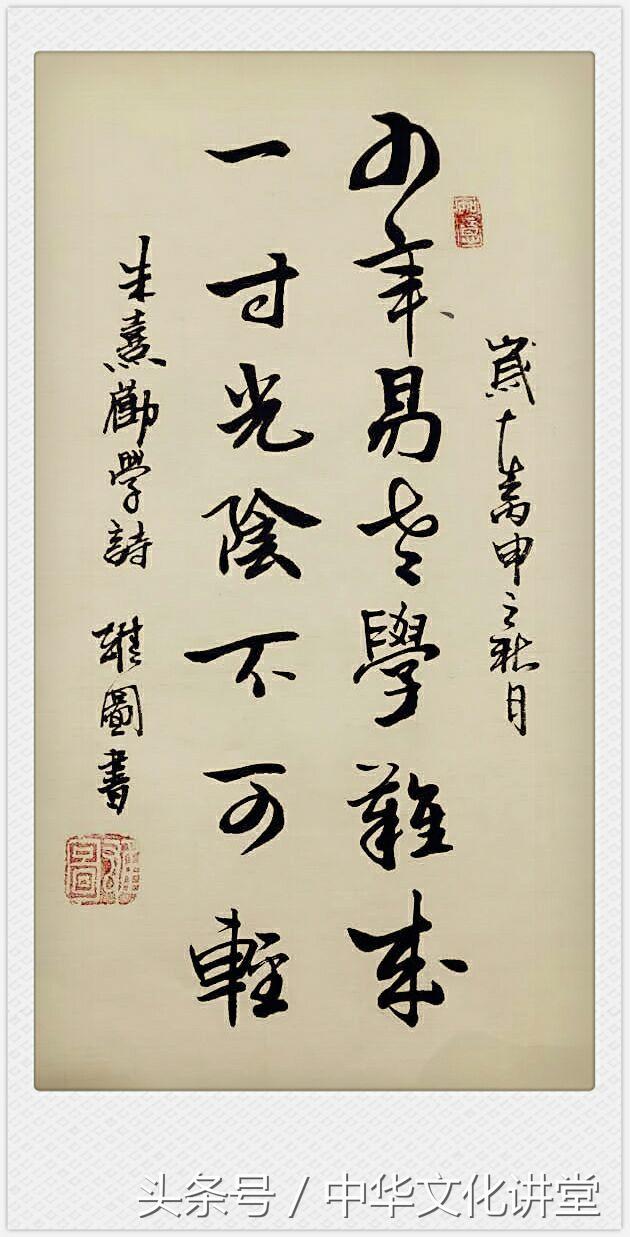 歲在丙申之秋月
少年易老學難成
一寸光陰不可輕
朱熹勸學詩 雄圖書
头条号 / 中华文化讲堂